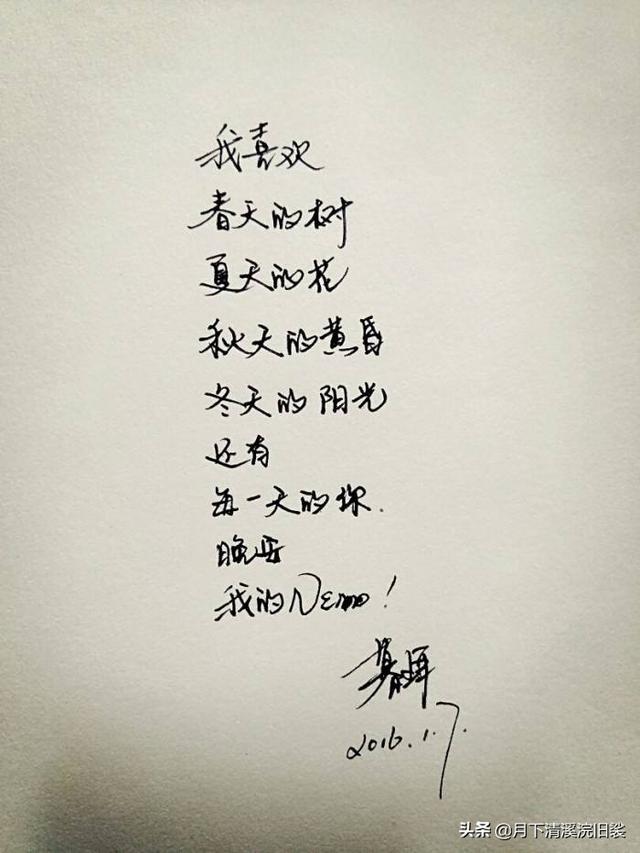 我喜欢
春天的树
夏天的花
秋天的黄昏
冬天的阳光
还有
每一天的你.
晚安
我的Nemo!
2016.1.7.
头条 @月下清溪浣旧裳